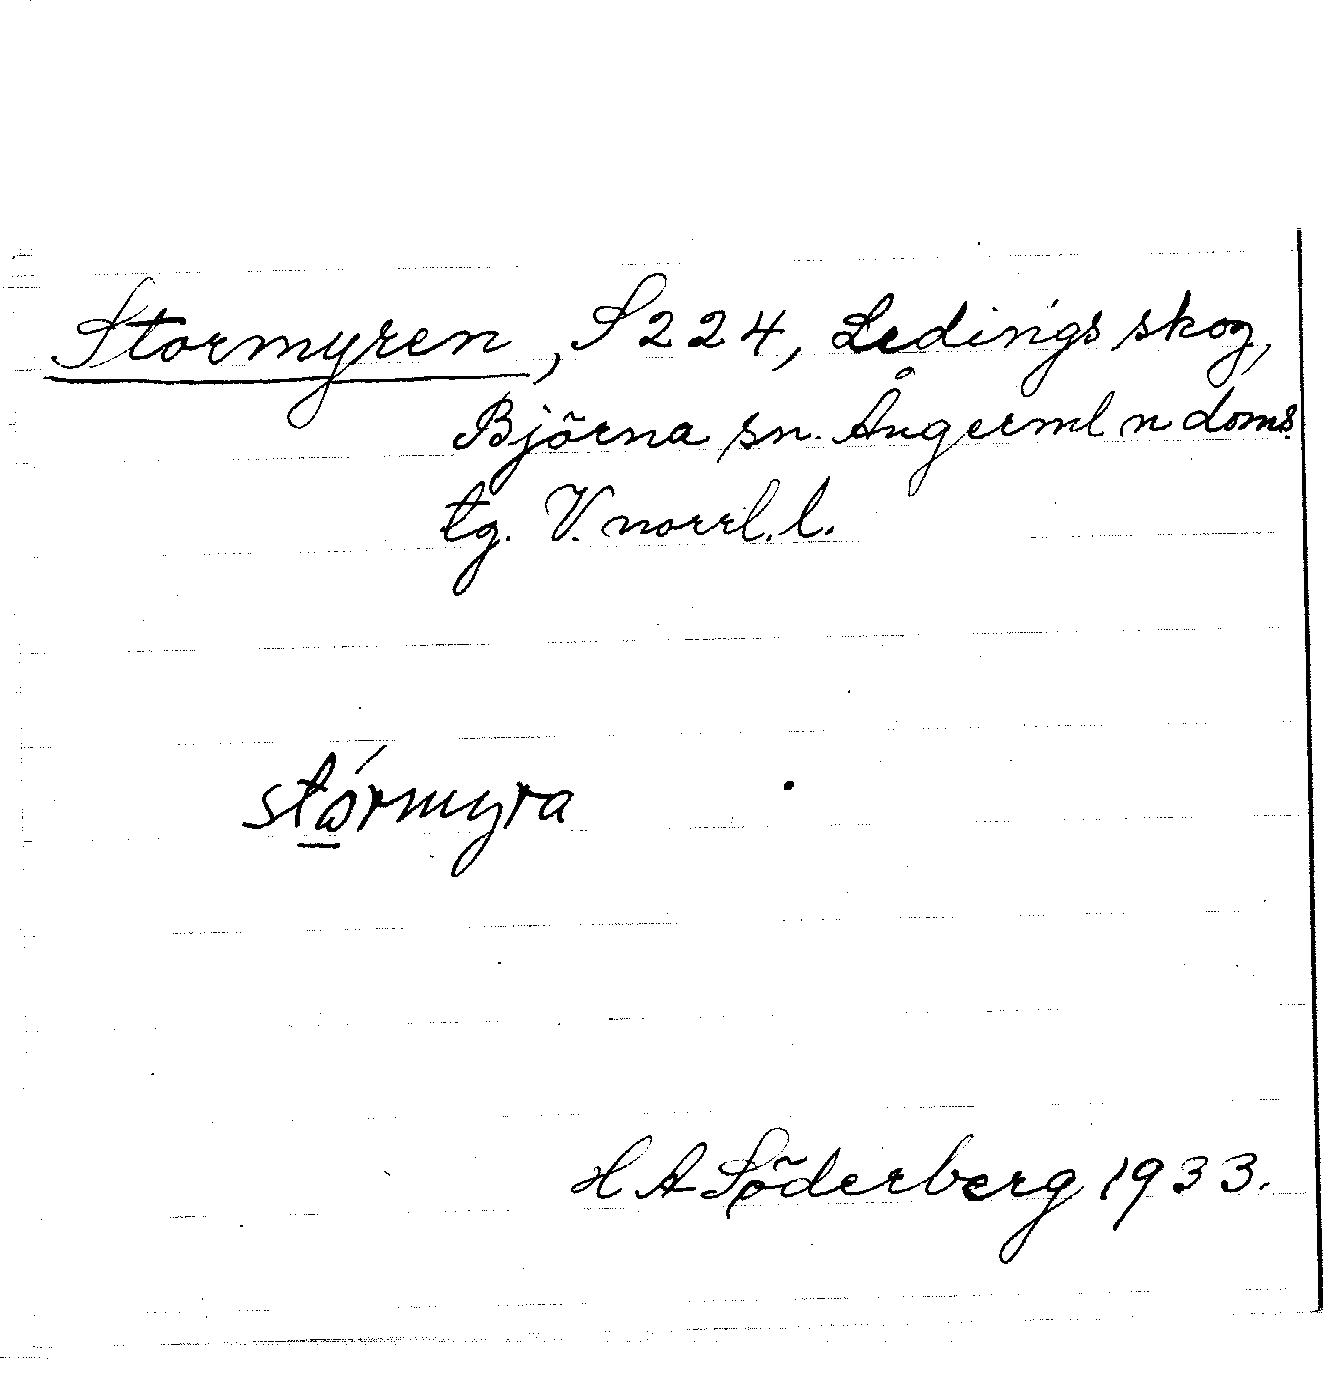 Stormyren, S 224, Ledingsskog,
Björna sn. Ångerml n doms.
tg. V. norrl. l.
stórmyra
H A Söderberg 1933.